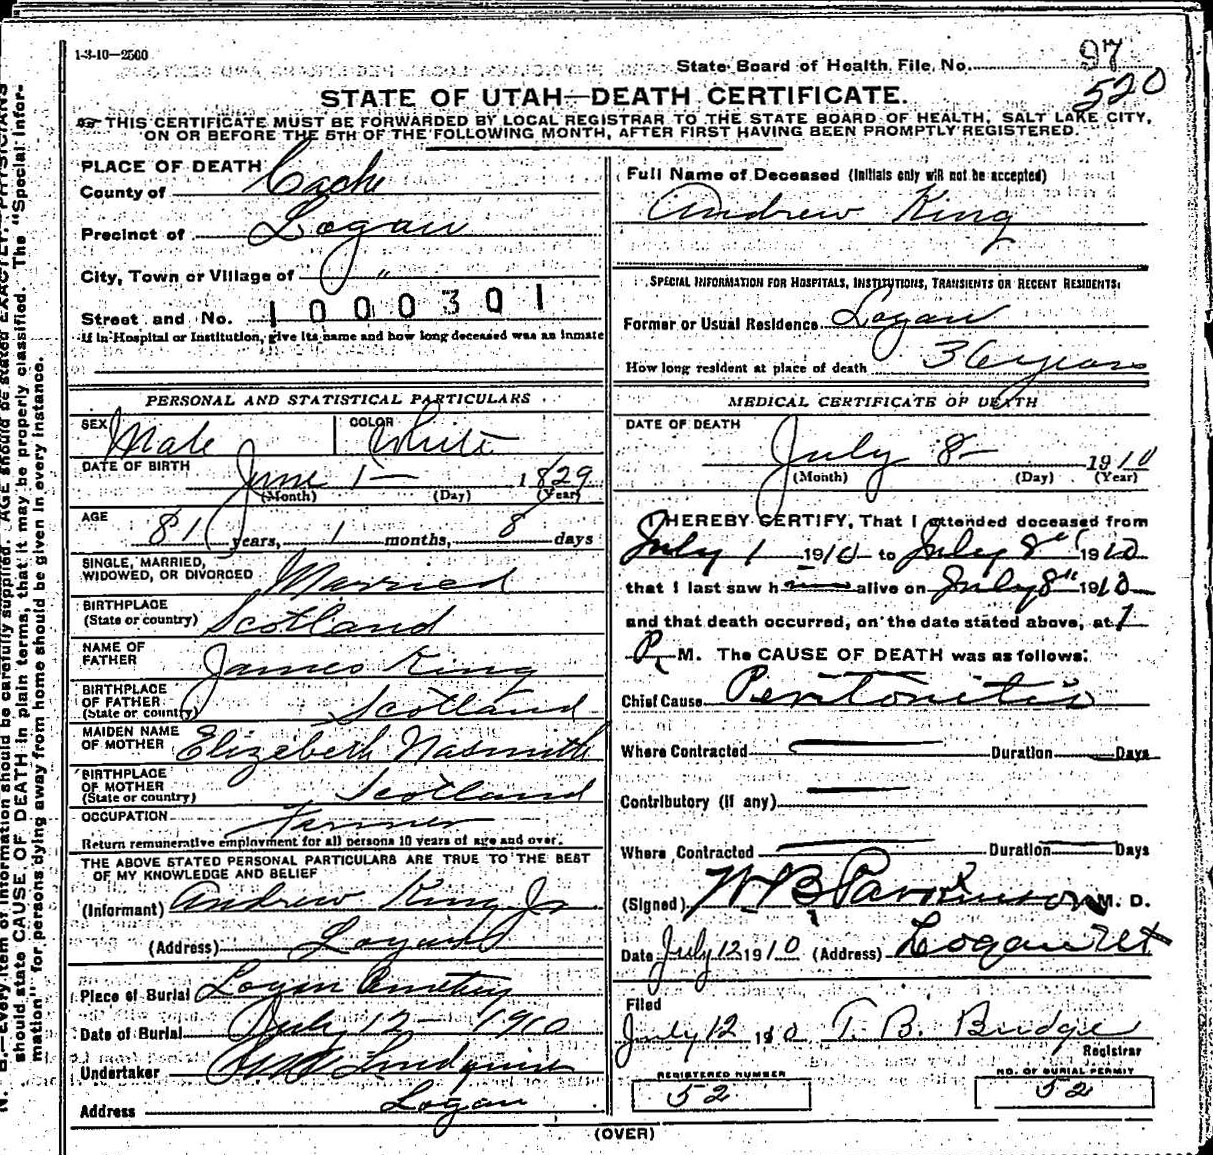 1-3-10—2500
State Board of Health File No. 97
520
STATE OF UTAH—DEATH CERTIFICATE.
THIS CERTIFICATE MUST BE FORWARDED BY LOCAL REGISTRAR TO THE STATE BOARD OF HEALTH, SALT LAKE CITY,
ON OR BEFORE THE 5TH OF THE FOLLOWING MONTH, AFTER FIRST HAVING BEEN PROMPTLY REGISTERED.
PLACE OF DEATH
County of Cache
Precinct of Logan
City, Town or Village of "
Street and No. 1000301
If in Hospital or Institution, give its name and how long deceased was an inmate
PERSONAL AND STATISTICAL PARTICULARS
SEX Male COLOR White
DATE OF BIRTH
June 1— 1829
(Month) (Day) (Year)
AGE
81 years, 1 months, 8 days
SINGLE, MARRIED,
WIDOWED, OR DIVORCED Married
BIRTHPLACE
(State or country) Scotland
NAME OF
FATHER James King
BIRTHPLACE
OF FATHER
(State or country) Scotland
MAIDEN NAME
OF MOTHER Elizebeth Nasmith
BIRTHPLACE
OF MOTHER
(State or country) Scotland
OCCUPATION Farmer
Return remunerative employment for all persons 10 years of age and over.
THE ABOVE STATED PERSONAL PARTICULARS ARE TRUE TO THE BEST
OF MY KNOWLEDGE AND BELIEF
(Informant) Andrew King Jr
(Address) Logan
Place of Burial Logan Cemetery
Date of Burial July 12— 1910
Undertaker Lindquist
Address Logan
Full Name of Deceased (Initials only will not be accepted)
Andrew King
SPECIAL INFORMATION FOR HOSPITALS, INSTITUTIONS, TRANSIENTS OR RECENT RESIDENTS:
Former or Usual Residence Logan
How long resident at place of death 36 years
MEDICAL CERTIFICATE OF DEATH
DATE OF DEATH
July 8— 1910
(Month) (Day) (Year)
I HEREBY CERTIFY, That I attended deceased from
July 1 1910 to July 8" 1910
that I last saw him alive on July 8" 1910
and that death occurred, on the date stated above, at 1
P. M. The CAUSE OF DEATH was as follows:
Chief Cause Peritonitis
Where Contracted — Duration — Days
Contributory (if any) —
Where Contracted — Duration — Days
(Signed) W B Parkinson M. D.
Date July 12 1910 (Address) Logan Ut
Filed
July 12 1910 T. B. Budge
Registrar
REGISTERED NUMBER
52
NO. OF BURIAL PERMIT
52
(OVER)
N. B.—Every item of information should be carefully supplied. AGE should be stated EXACTLY. PHYSICIANS
should state CAUSE OF DEATH in plain terms, that it may be properly classified. The "Special Infor-
mation" for persons dying away from home should be given in every instance.